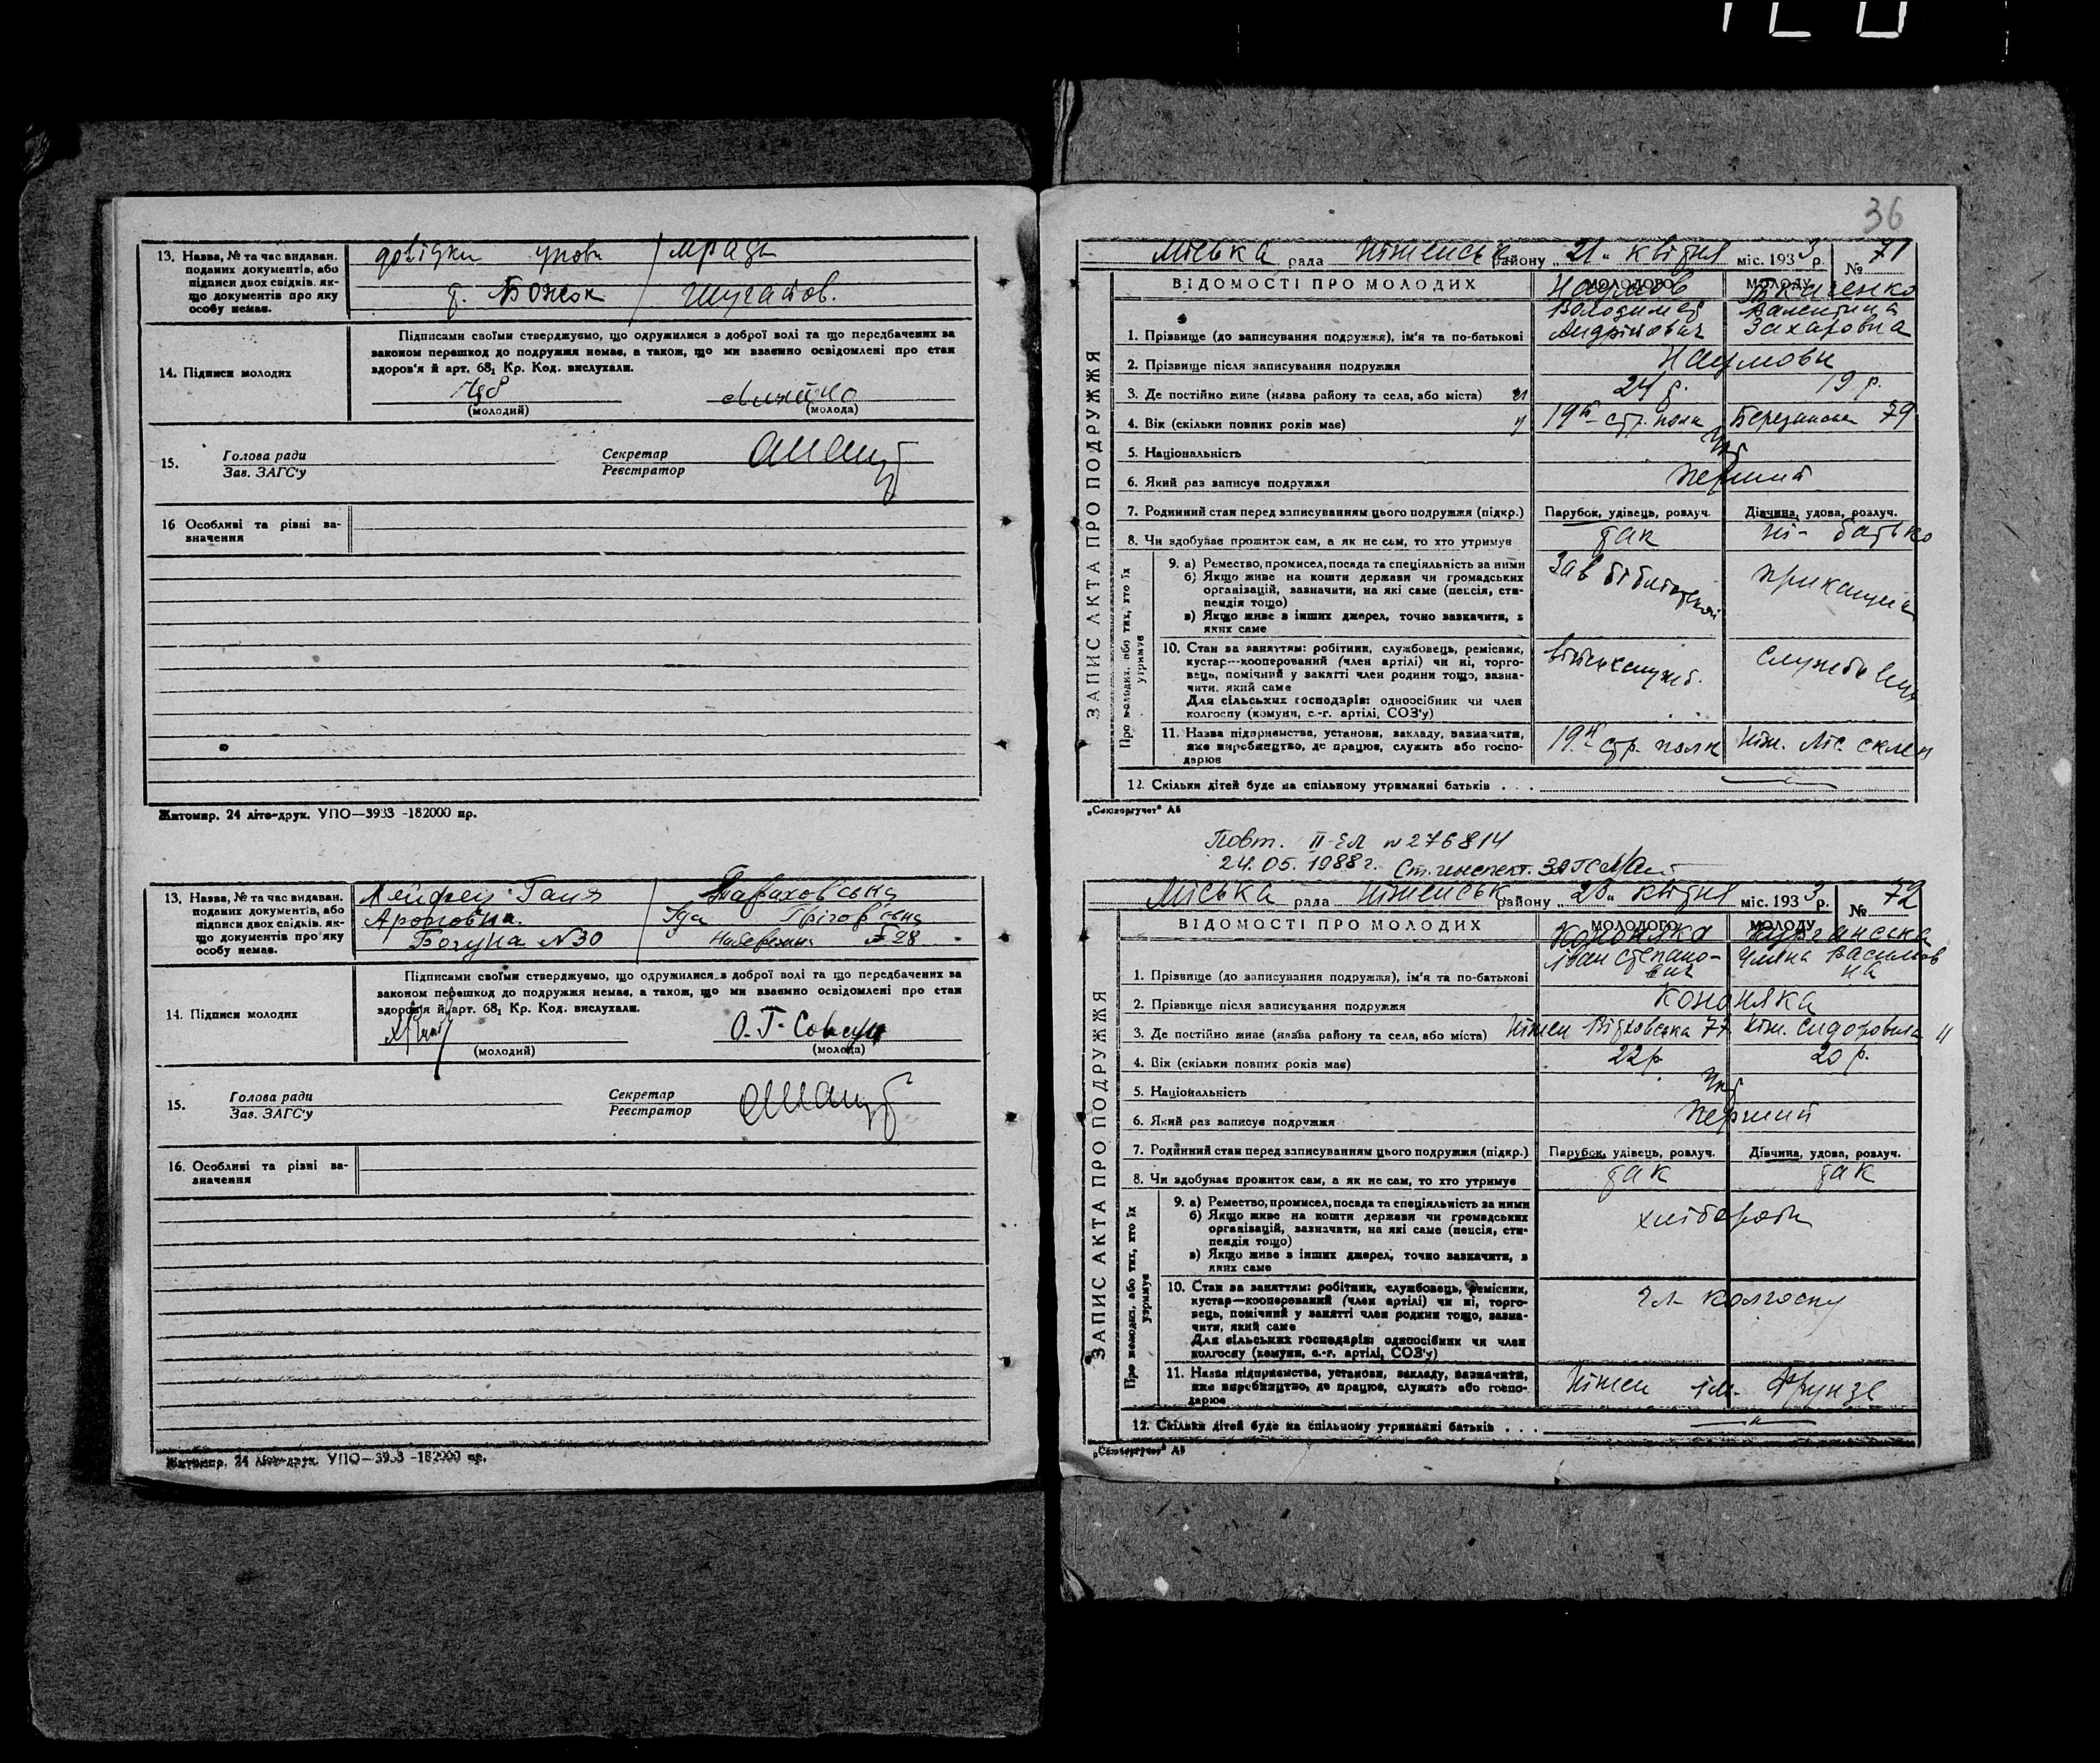 13. Назва, № та час видаван.
поданих документів, або
підписи двох свідків, як-
що документів про яку
особу немає.
довідки
т. Божок
14. Підписи молодих
Підписами своїми стверджуємо, що одружилися з доброї волі та що передбачених за
законом перешкод до подружжя немає, а також, що ми взаємно освідомлені про стан
здоров'я й арт. 68₁ Кр. Код. вислухали.
(молодий)
(молода)
15.
Голова ради
Зав. ЗАГС'у
Секретар
Реєстратор
16 Особливі та різні за-
значення
Житомир. 24 літо-друк. УПО—3933 -182000 пр.
13. Назва, № та час видаван.
поданих документів, або
підписи двох свідків, як-
що документів про яку
особу немає.
Ароновна
Богуна N 30
14. Підписи молодих
Підписами своїми стверджуємо, що одружилися з доброї волі та що передбачених за
законом перешкод до подружжя немає, а також, що ми взаємно освідомлені про стан
здоров'я й арт. 68₁ Кр. Код. вислухали.
(молодий)
(молода)
15.
Голова ради
Зав. ЗАГС'у
Секретар
Реєстратор
16. Особливі та різні за-
значення
Житомир. 24 літо-друк. УПО—3933 -182000 пр.
36
Міська рада Ніженськ району „21„ квітня міс. 1933 р. № 71
ВІДОМОСТІ ПРО МОЛОДИХ МОЛОДОГО МОЛОДУ
Наумов Ткаченко
Володимер Валентина
1. Прізвище (до записування подружжя), ім'я та по-батькові Андрійович Захаровна
2. Прізвище після записування подружжя Наумови
3. Де постійно живе (назва району та села, або міста) 24 р. 19 р.
4. Вік (скільки повних років має) 19й стр. полк 79
5. Національність Укр
6. Який раз записує подружжя Перший
7. Родинний стан перед записуванням цього подружжя (підкр.) Парубок, удівець, розлуч. Дівчина, удова, розлуч.
8. Чи здобуває прожиток сам, а як не сам, то хто утримує так ні - батько
ЗАПИС АКТА ПРО ПОДРУЖЖЯ
Про молодих, або тих, хто їх утримує
9. а) Ремество, промисел, посада та спеціяльність за ними
б) Якщо живе на кошти держави чи громадських
організацій, зазначити, на які саме (пенсія, сти-
пендія тощо)
в) Якщо живе з інших джерел, точно зазначити, з
яких саме
Зав
10. Стан за заняттям: робітник, службовець, ремісник,
кустар—кооперований (член артілі) чи ні, торго-
вець, помічний у занятті член родини тощо, зазна-
чити, який саме
Для сільських господарів: одноосібник чи член
колгоспу (комуни, с.-г. артілі, СОЗ'у)
11. Назва підприємства, установи, закладу, зазначити,
яке виробництво, де працює, служить або госпо-
дарює
19й стр. полк
12. Скільки дітей буде на спільному утриманні батьків . . .
„Союзоргучет" А5
Повт. II-ЕЛ N 276814
24.05.1988г. Ст. инспект. ЗАГС
Міська рада Ніженськ району „23„ квітня міс. 1933 р. № 72
ВІДОМОСТІ ПРО МОЛОДИХ МОЛОДОГО МОЛОДУ
Кононяка
Іван Степано- Уляна Васильов
1. Прізвище (до записування подружжя), ім'я та по-батькові вич на
2. Прізвище після записування подружжя Кононяка
3. Де постійно живе (назва району та села, або міста) Ніжен 77 Ніж. 11
4. Вік (скільки повних років має) 22 р. 20 р.
5. Національність Укр
6. Який раз записує подружжя Перший
7. Родинний стан перед записуванням цього подружжя (підкр.) Парубок, удівець, розлуч. Дівчина, удова, розлуч.
8. Чи здобуває прожиток сам, а як не сам, то хто утримує так так
ЗАПИС АКТА ПРО ПОДРУЖЖЯ
Про молодих, або тих, хто їх утримує
9. а) Ремество, промисел, посада та спеціяльність за ними
б) Якщо живе на кошти держави чи громадських
організацій, зазначити, на які саме (пенсія, сти-
пендія тощо)
в) Якщо живе з інших джерел, точно зазначити, з
яких саме
хлібороби
10. Стан за заняттям: робітник, службовець, ремісник,
кустар—кооперований (член артілі) чи ні, торго-
вець, помічний у занятті член родини тощо, зазна-
чити, який саме
Для сільських господарів: одноосібник чи член
колгоспу (комуни, с.-г. артілі, СОЗ'у)
чл. колгоспу
11. Назва підприємства, установи, закладу, зазначити,
яке виробництво, де працює, служить або госпо-
дарює
Ніжен ім. Фрунзе
12. Скільки дітей буде на спільному утриманні батьків . . .
„Союзоргучет" А5